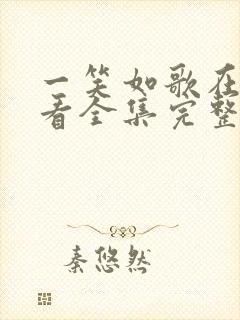 一笑如歌在
看全集完整
秦悠然